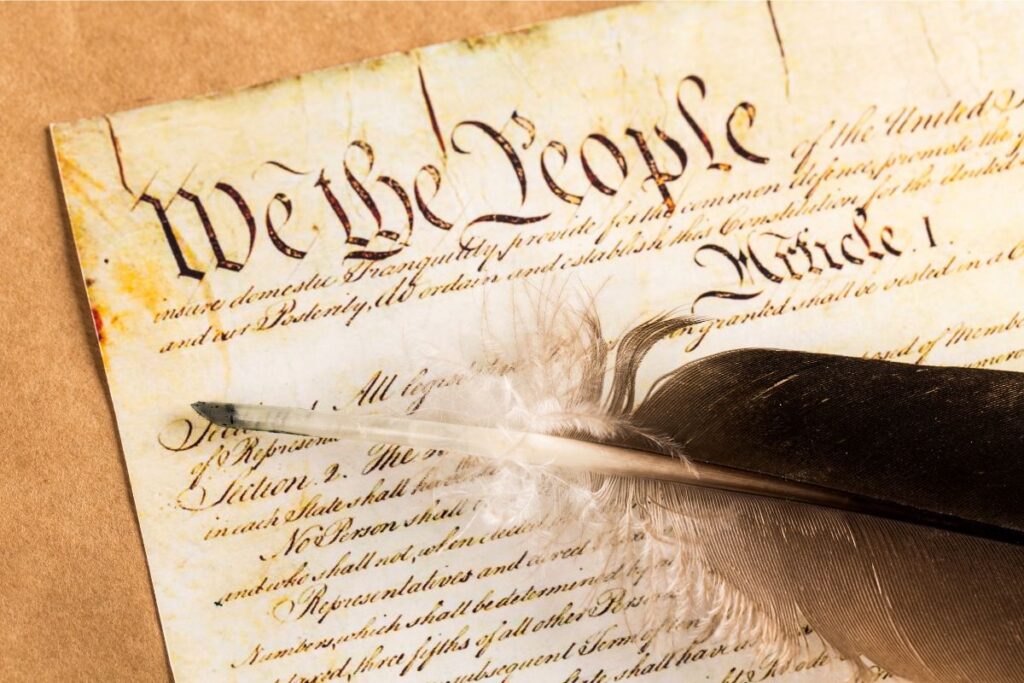 We the People of the United
insure domestic Tranquility, provide for the common defence, promote the
and our Posterity, do ordain and establish this Constitution for the United
Article. I.
granted shall be vested in a
All legis
of Represen
Section. 2. The
of Member
in each State shall have
No Person shall
and who shall not, when elected
Representatives and direct
Numbers, which shall be determined by
three fifths of all other Persons
subsequent Term of ten
State shall have